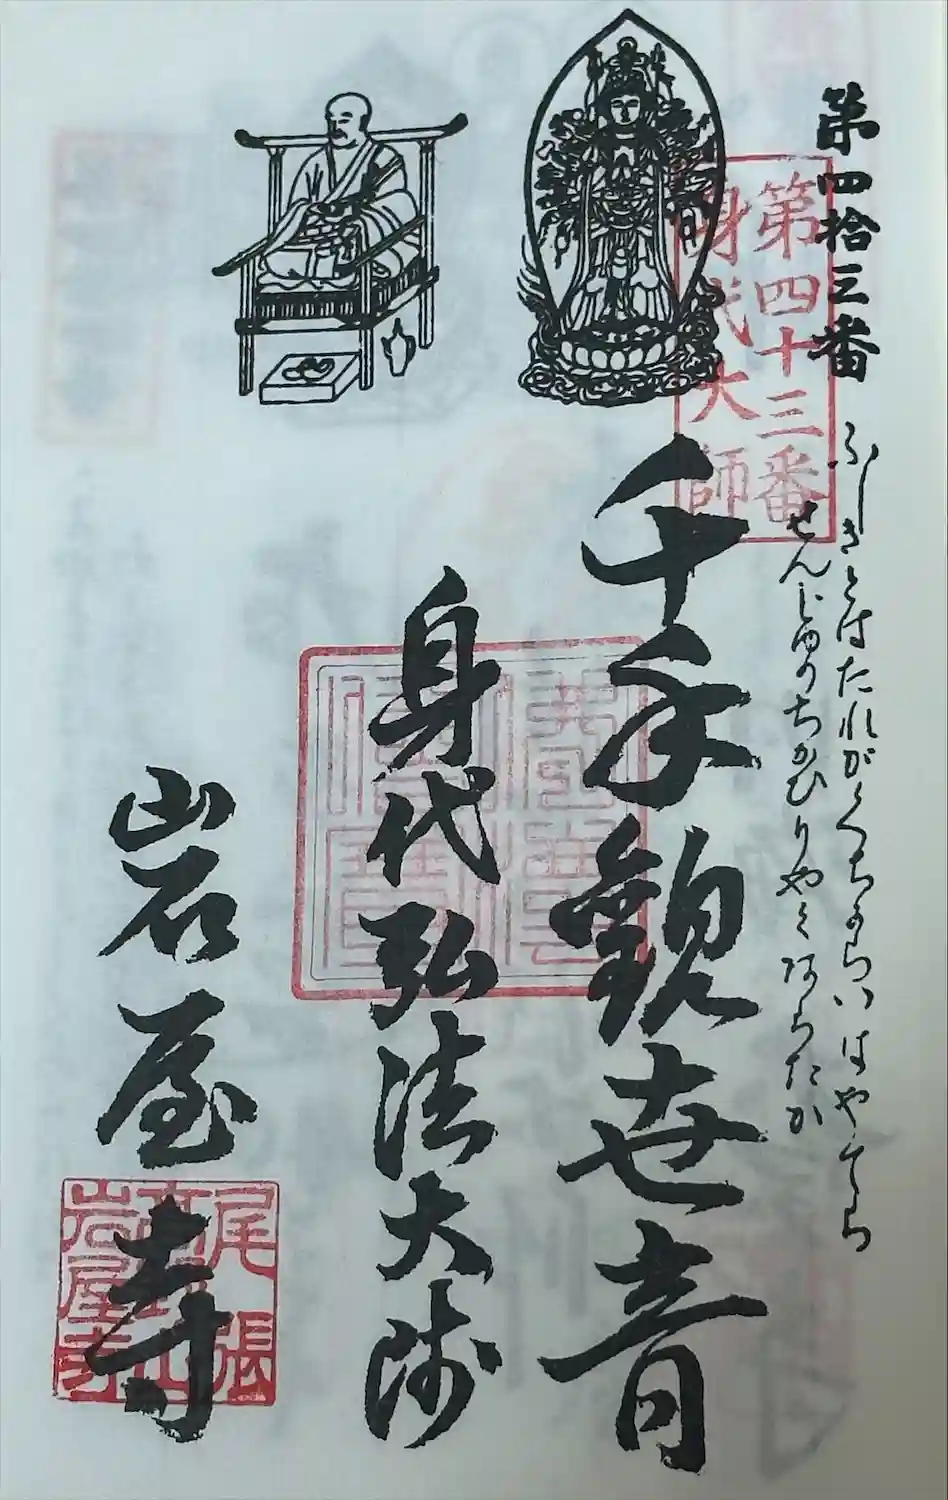 第四拾三番
ふしきとはたれがくちならいはやてら
せんじゅのちかひりやくあらたか
第四十三番
身代大師
千手観世音
身代弘法大師
岩屋寺
尾張
岩屋寺